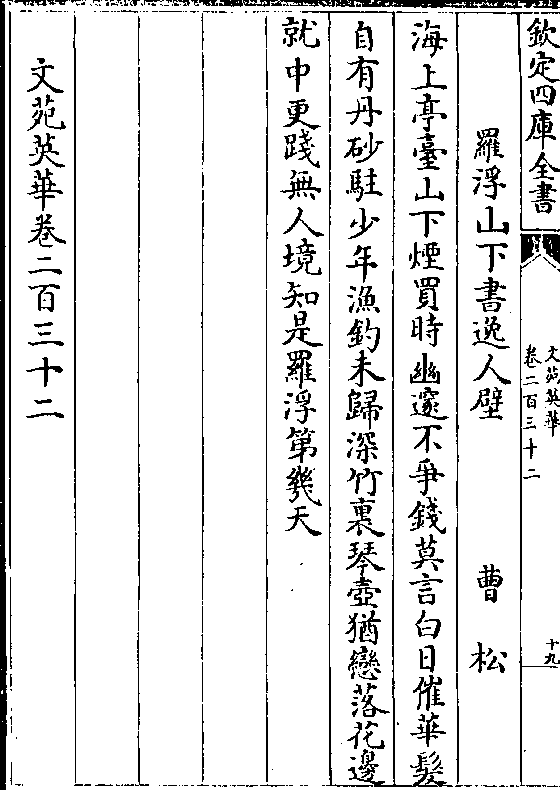 欽定四庫全書
文苑英華
卷二百三十二
十九
羅浮山下書逸人壁　曹松
海上亭臺山下煙買時幽邃不爭錢莫言白日催華髮
自有丹砂駐少年漁釣未歸深竹裏琴壺猶戀落花邊
就中更踐無人境知是羅浮第幾天
文苑英華卷二百三十二